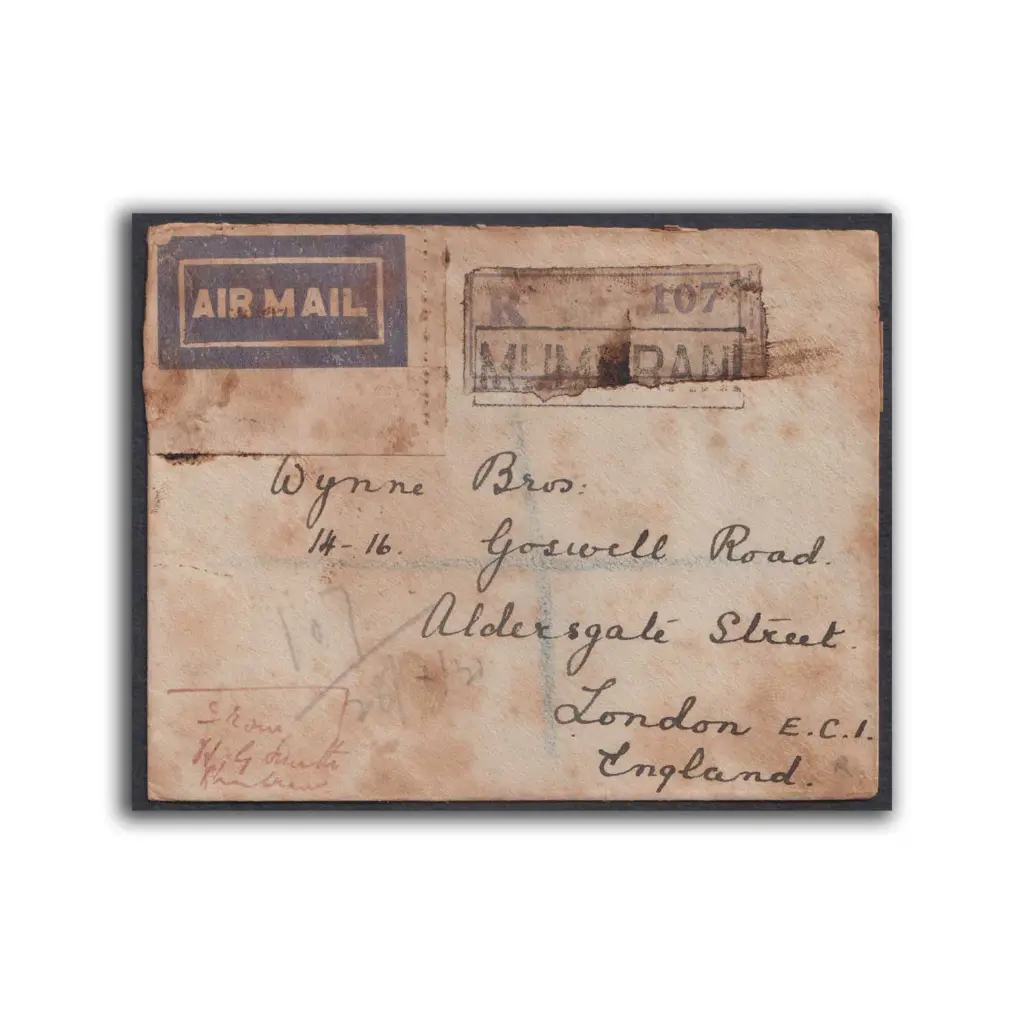 AIR MAIL
R 107
Wynne Bros:
14-16. Goswell Road.
Aldersgate Street.
London E.C.1.
England.
107
From
H. G. Smith
R